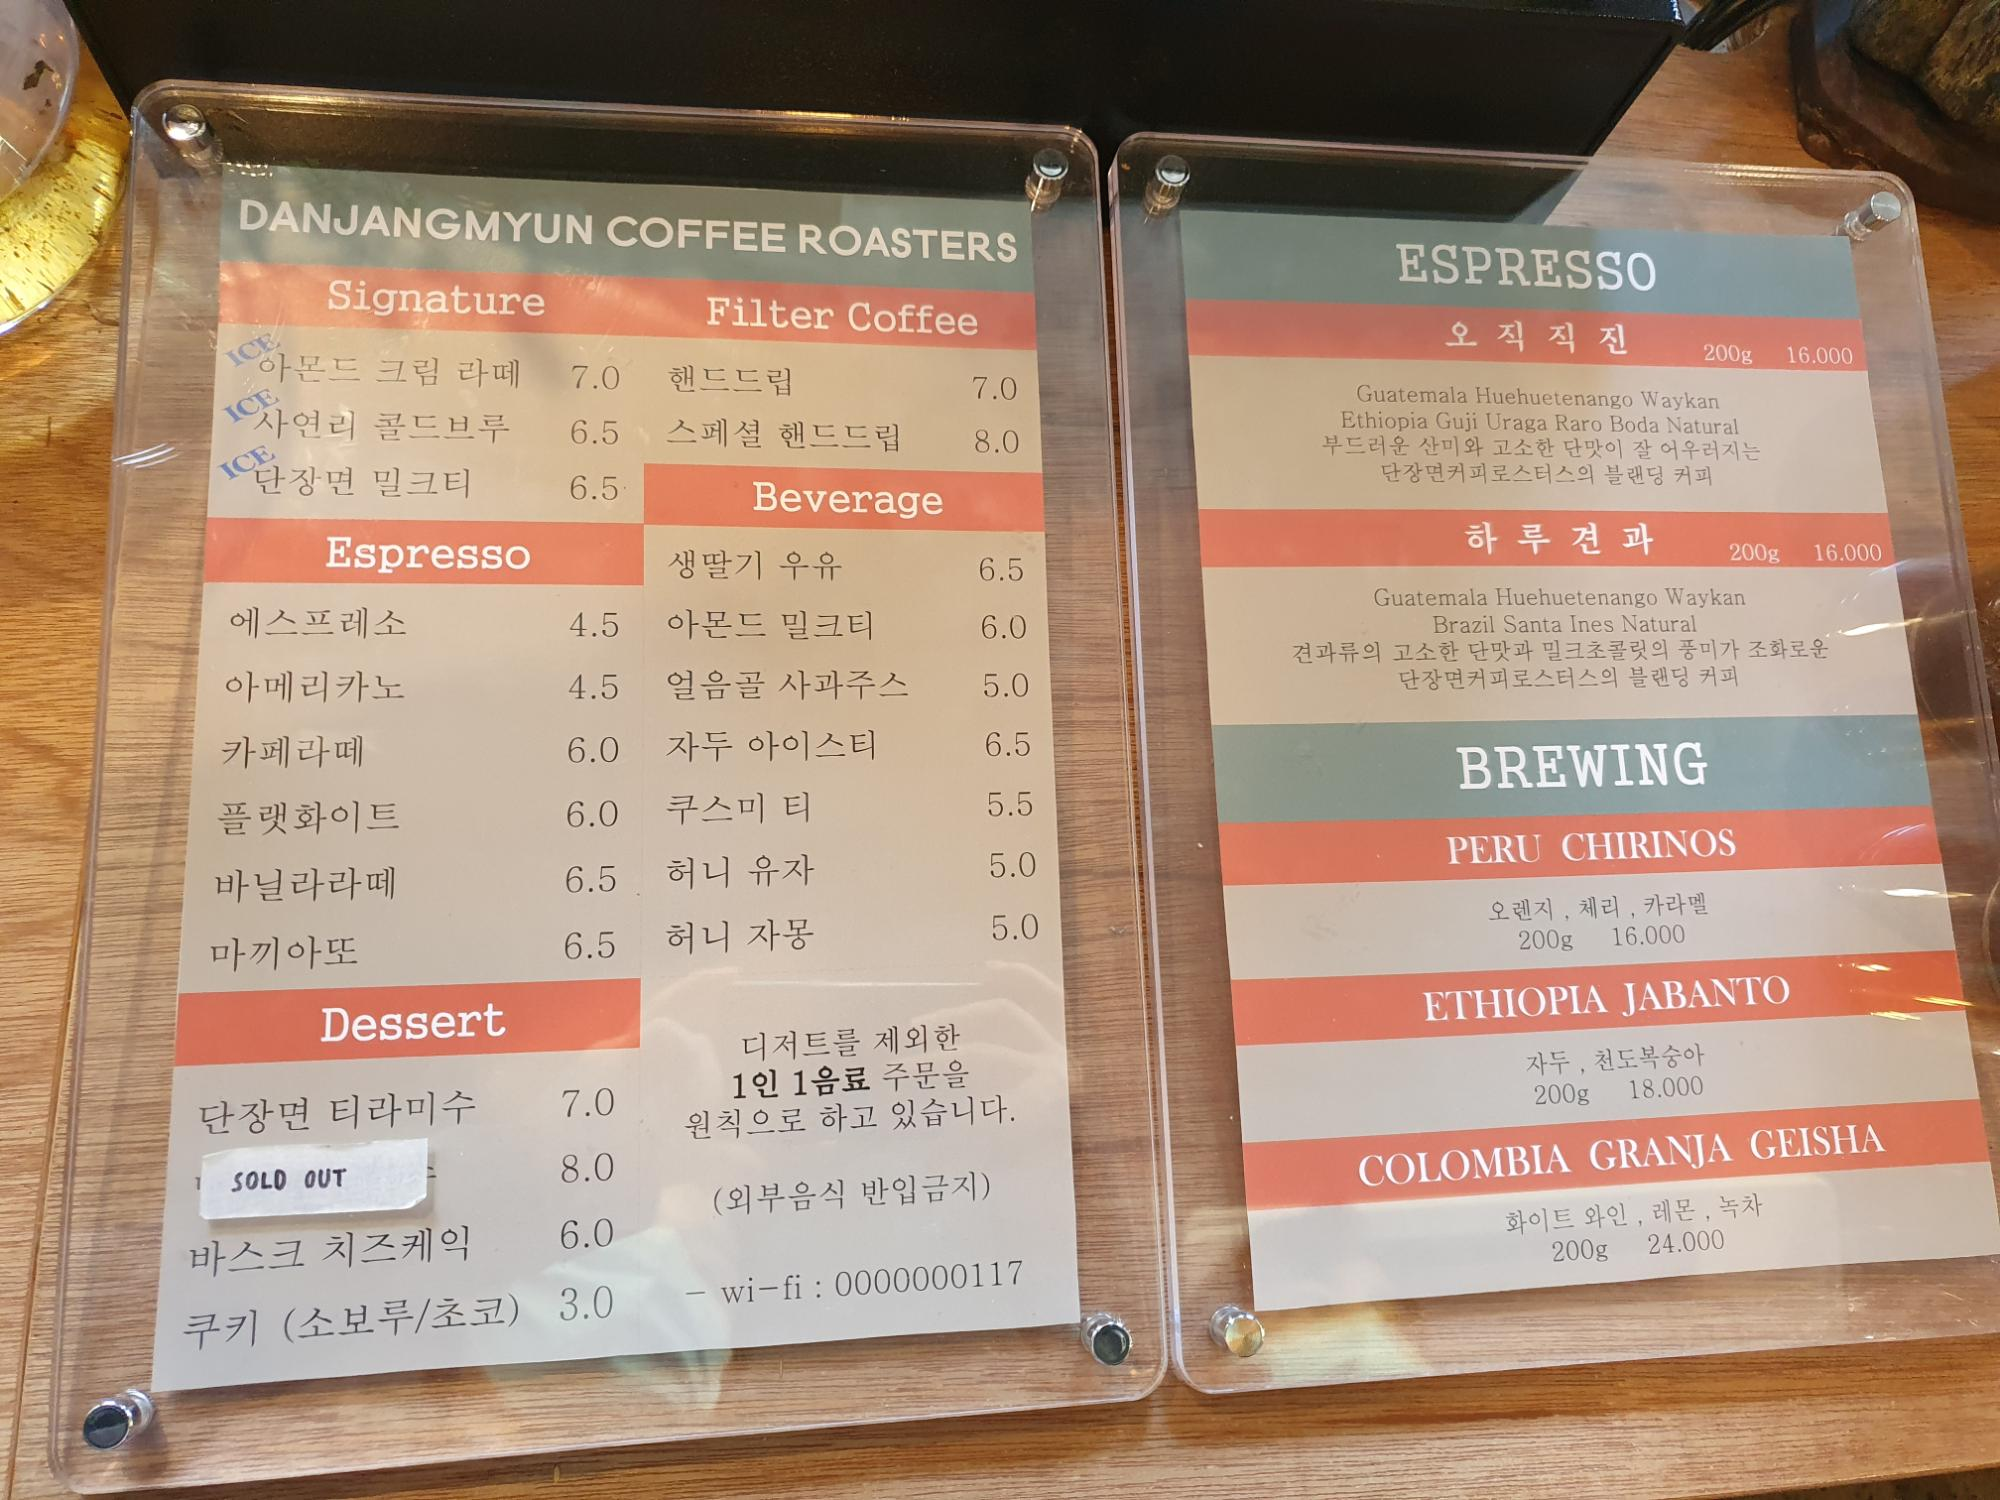 DANJANGMYUN COFFEE ROASTERS
Signature
ICE
아몬드 크림 라떼 7.0
ICE
사연리 콜드브루 6.5
ICE
단장면 밀크티 6.5
Espresso
에스프레소 4.5
아메리카노 4.5
카페라떼 6.0
플랫화이트 6.0
바닐라라떼 6.5
마끼아또 6.5
Dessert
단장면 티라미수 7.0
SOLD OUT 8.0
바스크 치즈케익 6.0
쿠키 (소보루/초코) 3.0
Filter Coffee
핸드드립 7.0
스페셜 핸드드립 8.0
Beverage
생딸기 우유 6.5
아몬드 밀크티 6.0
얼음골 사과주스 5.0
자두 아이스티 6.5
쿠스미 티 5.5
허니 유자 5.0
허니 자몽 5.0
디저트를 제외한
1인 1음료 주문을
원칙으로 하고 있습니다.
(외부음식 반입금지)
- wi-fi : 0000000117
ESPRESSO
오 직 직 진 200g 16.000
Guatemala Huehuetenango Waykan
Ethiopia Guji Uraga Raro Boda Natural
부드러운 산미와 고소한 단맛이 잘 어우러지는
단장면커피로스터스의 블랜딩 커피
하 루 견 과 200g 16.000
Guatemala Huehuetenango Waykan
Brazil Santa Ines Natural
견과류의 고소한 단맛과 밀크초콜릿의 풍미가 조화로운
단장면커피로스터스의 블랜딩 커피
BREWING
PERU CHIRINOS
오렌지 , 체리 , 카라멜
200g 16.000
ETHIOPIA JABANTO
자두 , 천도복숭아
200g 18.000
COLOMBIA GRANJA GEISHA
화이트 와인 , 레몬 , 녹차
200g 24.000